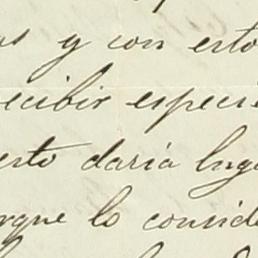 as y con esto
ecibir especi
esto daría lug
rque lo consid